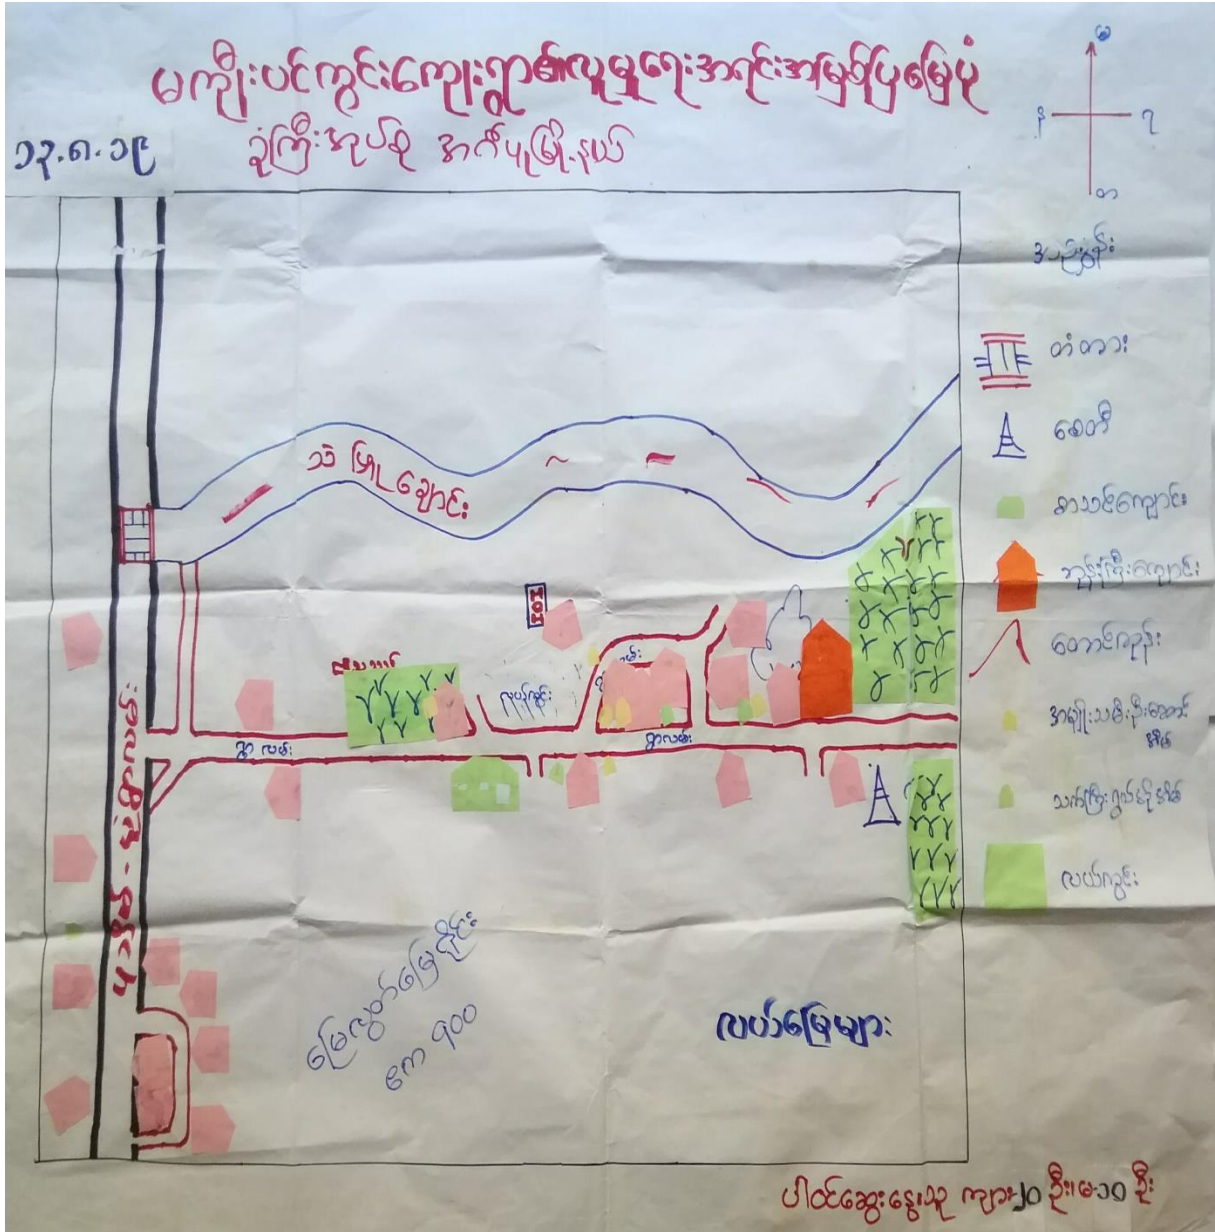 မကျီးပင်ကွင်းကျေးရွာ၏လူမှုရေးအရင်းအမြစ်ပြမြေပုံ
၁၃.၈.၁၉
ခုံကြီးအုပ်စု အင်္ဂပူမြို့နယ်
မ
န
ဂ
တ
တံတား
စေတီ
စာသင်ကျောင်း
ဘုန်းကြီးကျောင်း
တောင်ကုန်း
အမျိုးသမီးဦးဆောင်
အိမ်
သက်ကြီးရွယ်အိုအိမ်
လယ်ကွင်း
သဲဖြူချောင်း
လယ်ကွင်း
ရွာလမ်း
ရွာလမ်း
မြေလွတ်မြေရိုင်း
ဧက ၅၀၀
လယ်မြေများ
ပါဝင်ဆွေးနွေးသူ ကျား-၂၀ ဦး၊ မ-၁၀ ဦး